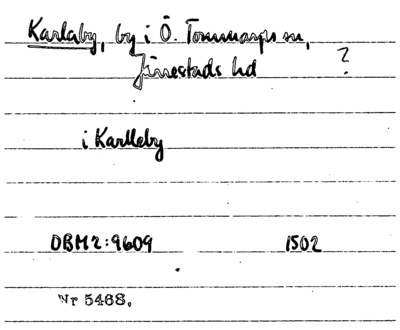 Karlaby, by i Ö. Tommarps sn,
Järrestads hd ?
i Karlleby
DBM 2:9609 1502
Nr 5468.